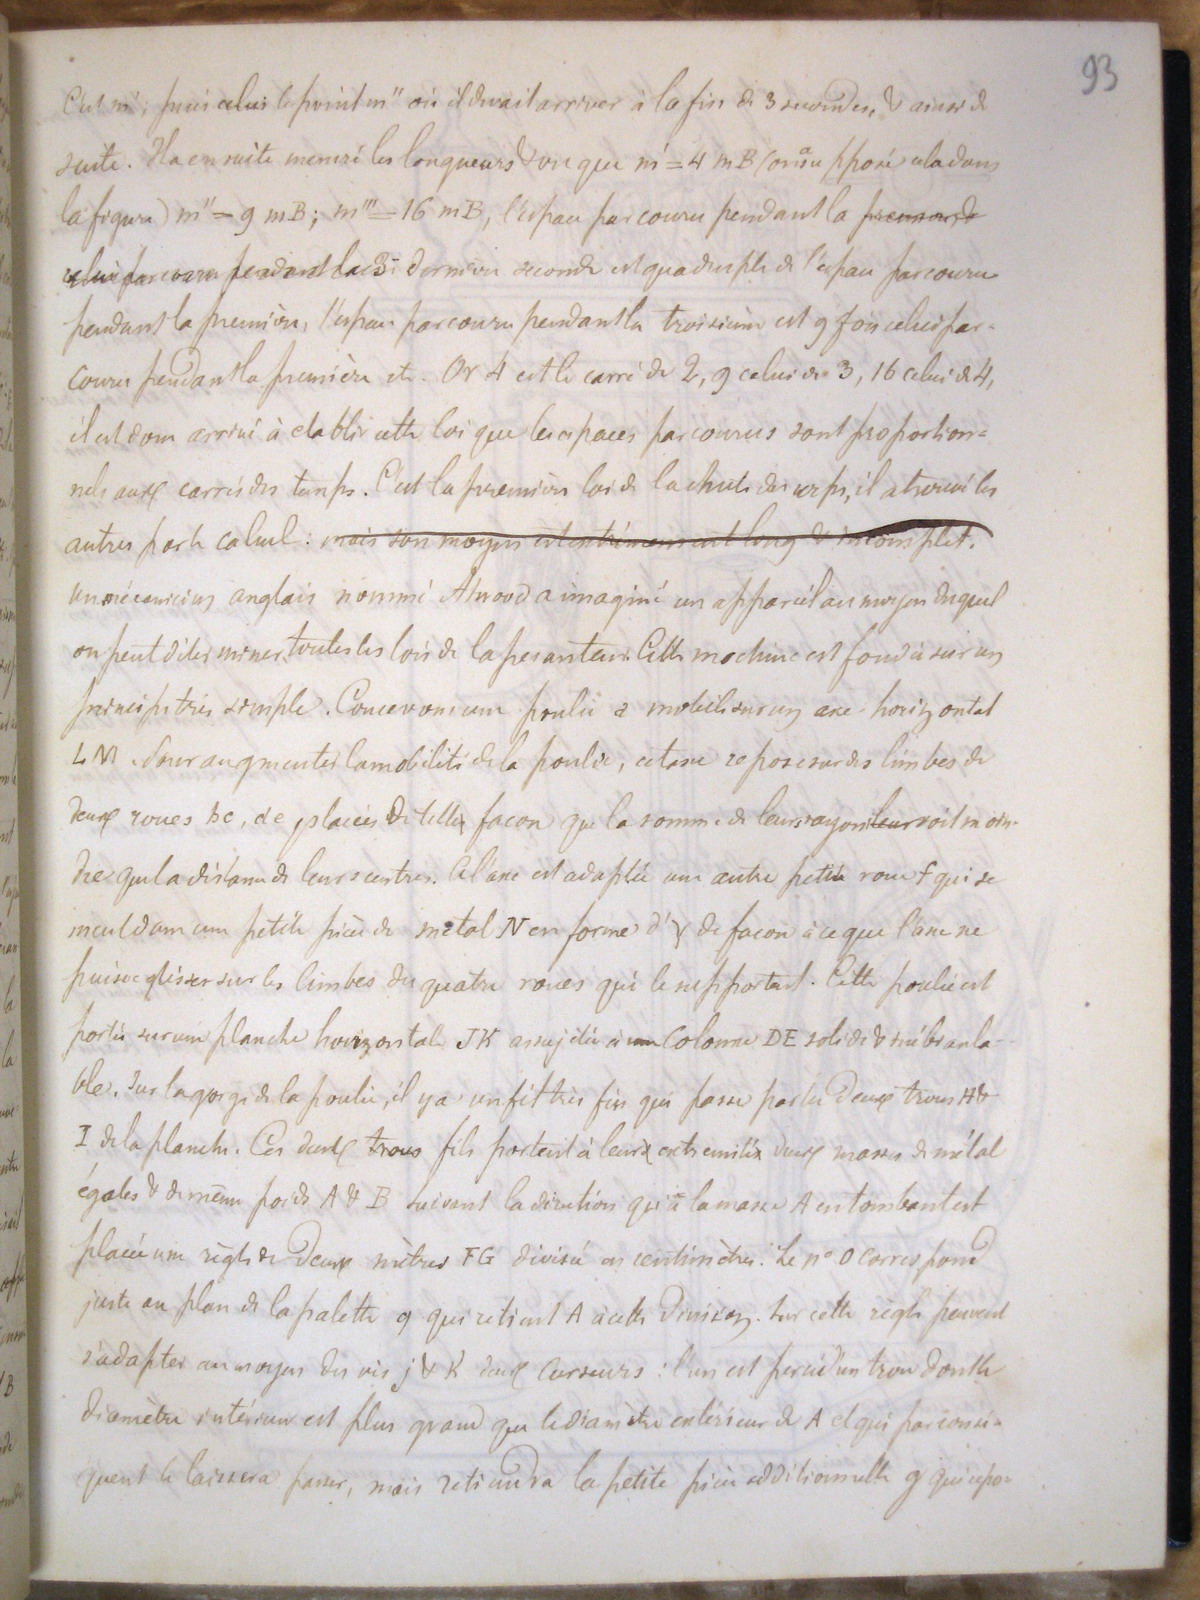 93
C'est m'; puis celui le point m'' où il devait arriver à la fin de 3 secondes, & ainsi de
suite. Il a ensuite mesuré les longueurs & vu que m' = 4 mB (on a supposé cela dans
la figure) m'' = 9 mB; m''' = 16 mB, l'espace parcouru pendant la
celui parcouru pendant la 3e dernière seconde est quadruple de l'espace parcouru
pendant la première, l'espace parcouru pendant la troisième est 9 fois celui par-
couru pendant la première etc. Or 4 est le carré de 2, 9 celui de 3, 16 celui de 4,
il est donc arrivé à établir cette loi que les espaces parcourus sont proportion=
nels aux carrés des temps. C'est la première loi de la chute des corps, il a trouvé les
autres par le calcul: mais son moyen est extrêmement long & incomplet.
un mécanicien anglais nommé Atwood a imaginé un appareil au moyen duquel
on peut déterminer toutes les lois de la pesanteur. Cette machine est fondée sur un
principe très simple. Concevons une poulie a mobile sur un axe horizontal
LM. Pour augmenter la mobilité de la poulie, cet axe repose sur des limbes de
deux roues bc, de, placées de telle façon que la somme de leurs rayons leur soit moin-
dre que la distance de leurs centres. A l'axe est adaptée une autre petite roue f qui se
meut dans une petite pièce de métal N en forme d'Y de façon à ce que l'axe ne
puisse glisser sur les limbes des quatre roues qui le supportent. Cette poulie est
portée sur une planche horizontale JK assujétie à une Colonne DE solide & inébranla-
ble. Sur la gorge de la poulie, il y a un fil très fin qui passe par les deux trous H &
I de la planche. Ces deux trous fils portent à leurs extremités deux masses de métal
égales & de même poids A & B suivant la direction qu'a la masse A en tombant est
placée une règle de deux mètres FG divisée en centimètres. Le n° 0 correspond
juste au plan de la palette g qui retient A à cette division. Sur cette règle peuvent
s'adapter au moyen des vis j & k deux curseurs: l'un est percé d'un trou dont le
diamètre intérieur est plus grand que le diamètre extérieur de A et qui par consé=
quent le laissera passer, mais retiendra la petite pièce additionnelle g qui repo-